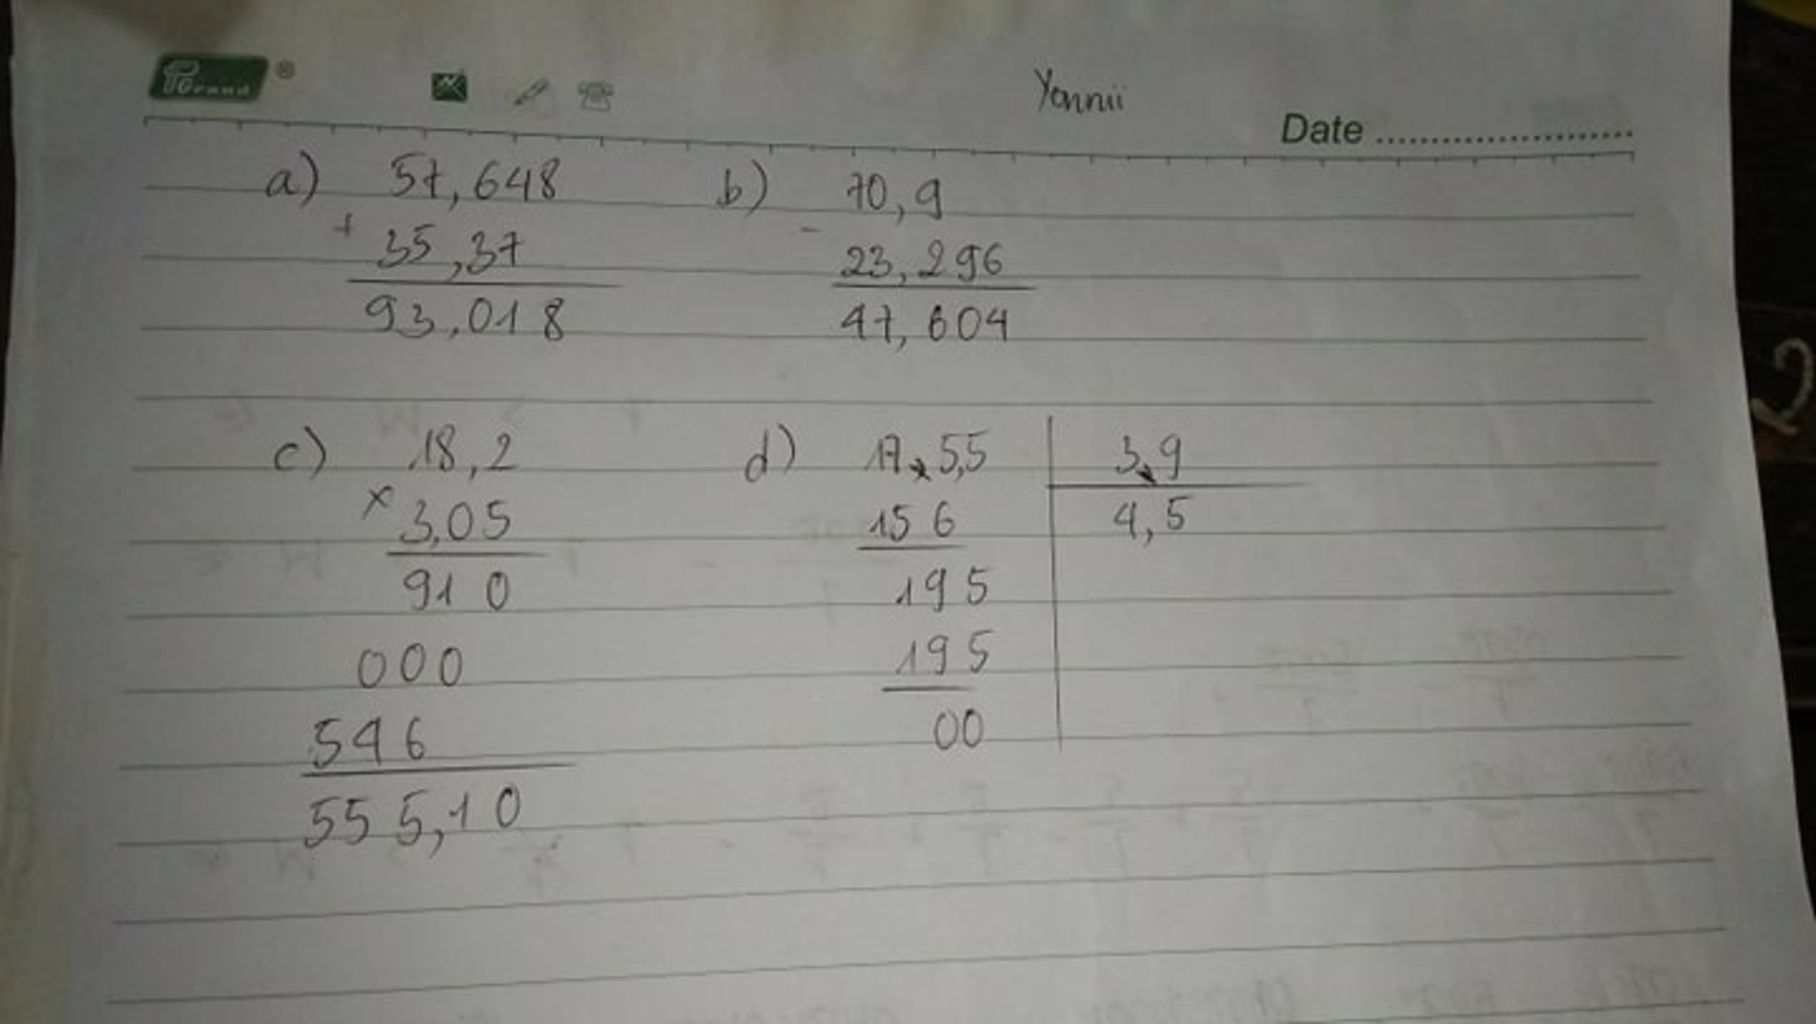 Grand ®
Yannii
Date ........................
a) 57,648 b) 70,9
+ 35,37 - 23,296
93,018 47,604
c) 18,2 d) 17,5,5 3,9
x 3,05 15 6 4,5
91 0 195
000 195
546 00
555,10